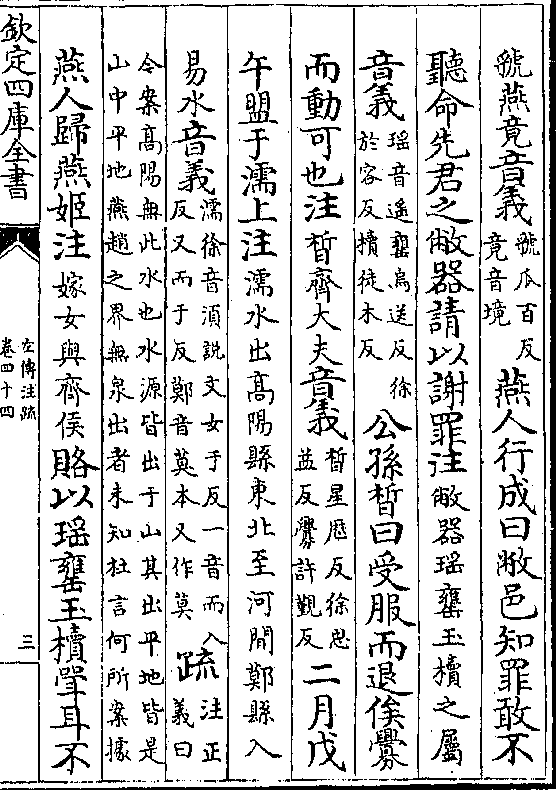 虢燕竟音義虢瓜百反竟音境燕人行成曰敝邑知罪敢不
聽命先君之敝器請以謝罪注敝器瑶罋玉櫝之屬
音義瑶音遥罋烏送反徐於容反櫝徒木反公孫晳曰受服而退俟釁
而動可也注晳齊大夫音義晳星厯反徐思益反釁許覲反二月戊
午盟于濡上注濡水出高陽縣東北至河間鄚縣入
易水音義濡徐音須説文女于反一音而又而于反鄚音莫本又作莫疏注正義曰
今案高陽無此水也水源皆出于山其出平地皆是山中平地燕趙之界無泉出者未知杜言何所案據
燕人歸燕姬注嫁女與齊侯賂以瑶罋玉櫝斝耳不
欽定四庫全書
左傳注疏
卷四十四
三